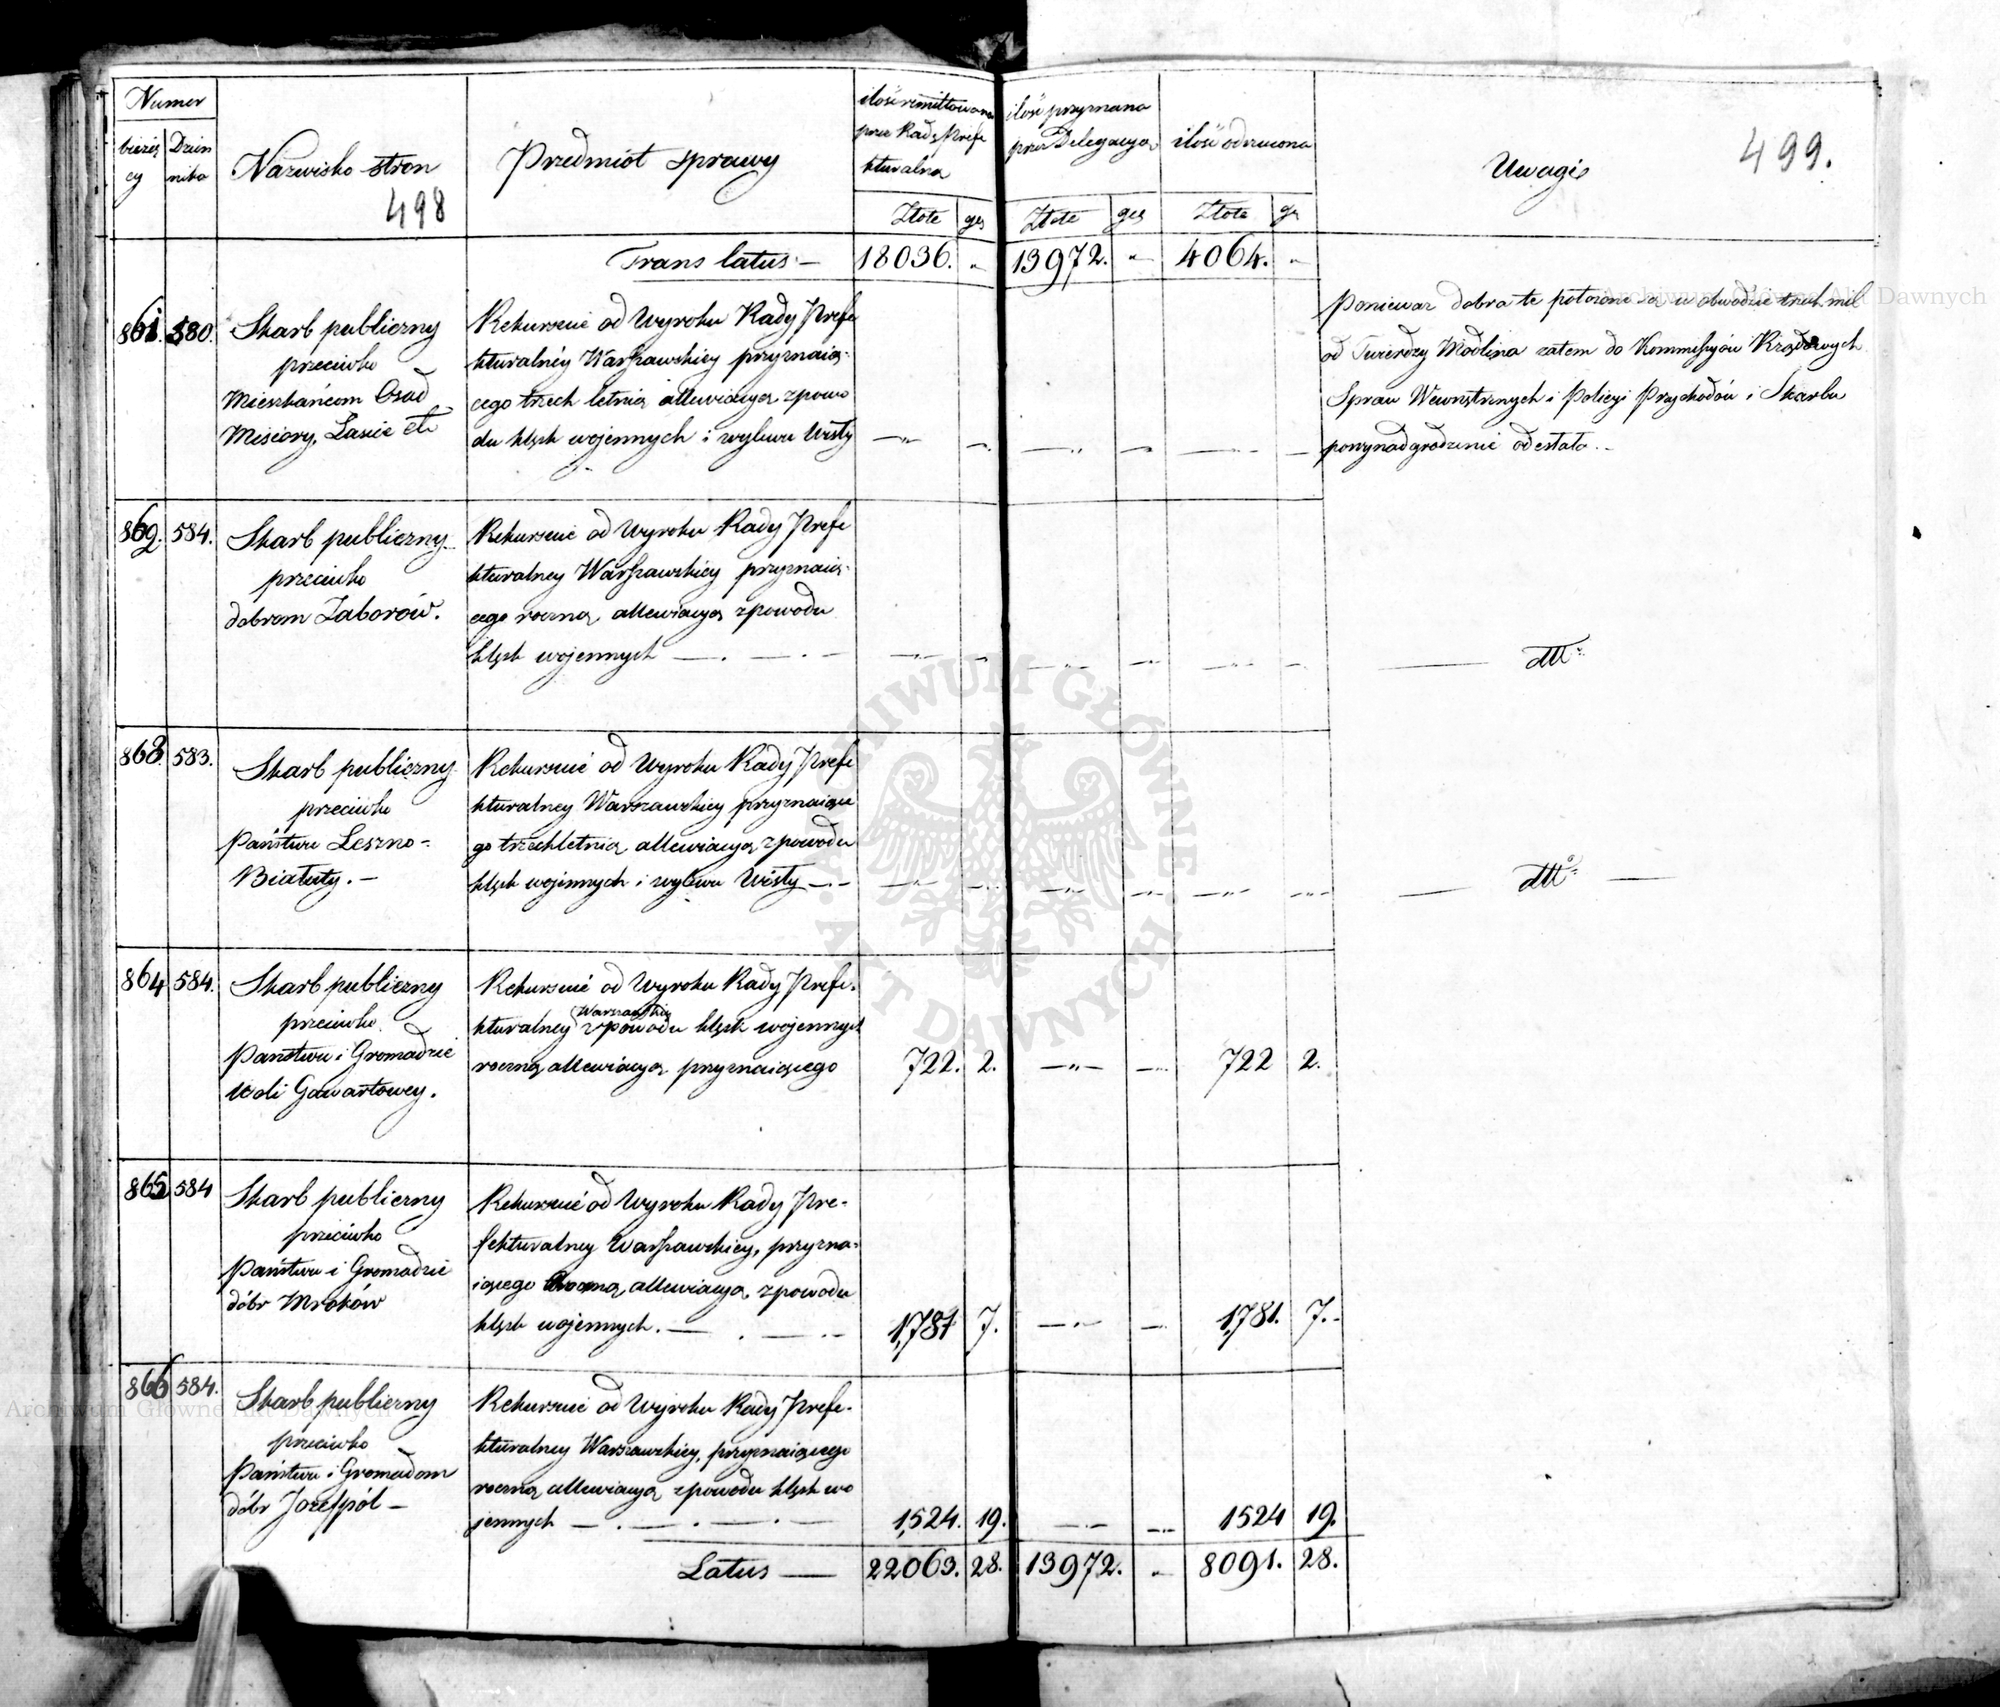 Numer
bieżą
cy
Dzien
nika
Nazwisko stron
498
Przedmiot sprawy
ilość remittowana
prze Radę Prefe
kturalną
Złote
gr
ilość przyznana
przez Delegacyą
Złote
gr
ilość odrzucona
Złote
gr
Uwagi
499.
Trans latus —
18036. „
13972. „
4064. „
861. 580.
Skarb publiczny
przeciwko
Mieszkańcom Osad
Misiory, Lasie etc
Rekursuie od Wyroku Rady Prefe
kturalney Warszawskiey przyznaią-
cego trzech letnią allewiacyą z powo
du klęsk wojennych i wylewu Wisły
Ponieważ dobra te położone są w obwodzie trzech mil
od Twierdzy Modlina zatem do Kommissyów Rządowych
Spraw Wewnętrznych i Policyi Przychodów i Skarbu
po wynadgrodzenie odesłała.
862. 584.
Skarb publiczny
przeciwko
dobrom Zaborów.
Rekursuie od Wyroku Rady Prefe
kturalney Warszawskiey przyznaią-
cego roczną allewiacyą z powodu
klęsk wojennych
dtto
863. 583.
Skarb publiczny
przeciwko
Państwu Leszno-
Białuty. —
Rekursuie od Wyroku Rady Prefe
kturalney Warszawskiey przyznaiące
go trzechletnią allewiacyą z powodu
klęsk wojennych i wylewu Wisły
dtto
864 584.
Skarb publiczny
przeciwko
Państwu i Gromadzie
Woli Gawartowey.
Rekursuie od Wyroku Rady Prefe-
Warszawskiey
kturalney z powodu klęsk wojennych
roczną allewiacyą przyznaiącego
722. 2.
722 2.
865 584
Skarb publiczny
przeciwko
Państwu i Gromadzie
dóbr Mroków
Rekursuie od Wyroku Rady Pre-
fekturalney Warszawskiey, przyzna-
iącego roczną allewiacyą z powodu
klęsk wojennych. —
1,781 7.
1,781. 7.
866 584.
Skarb publiczny
przeciwko
Państwu i Gromadom
dóbr Jozefpól —
Rekursuie od Wyroku Rady Prefe-
kturalney Warszawskiey, przyznaiącego
roczną allewiacyą z powodu klęsk wo
jennych —
1,524. 19.
1524 19.
Latus —
22063. 28.
13972. „
8091. 28.
Archiwum Główne Akt Dawnych
Archiwum Główne Akt Dawnych
ARCHIWUM GŁÓWNE
AKT DAWNYCH